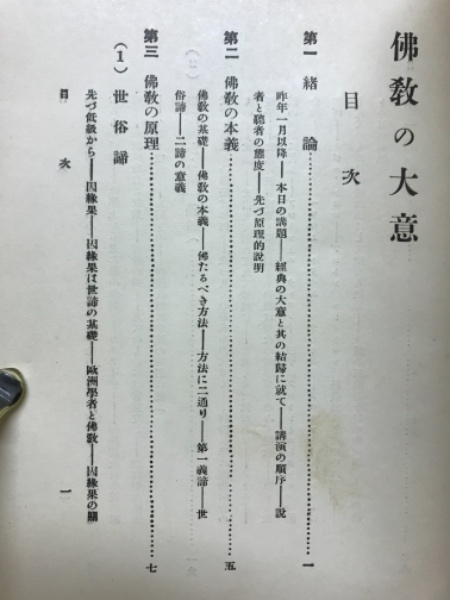 佛敎の大意
目次
第一 緖論……一
昨年一月以降――本日の講題――經典の大意と其の結歸に就て――講演の順序――說
者と聽者の態度――先づ原理的說明
第二 佛敎の本義……五
佛敎の基礎――佛敎の本義――佛たるべき方法――方法に二通り――第一義諦――世
俗諦――二諦の意義
第三 佛敎の原理……七
(1) 世俗諦
先づ低級から――因緣果――因緣果は世諦の基礎――歐洲學者と佛敎――因緣果の關
目次 一